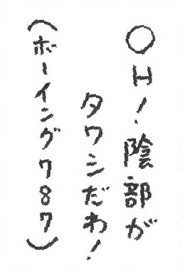 ○H！陰部が
タワシだわ！
（ボーイング７８７）